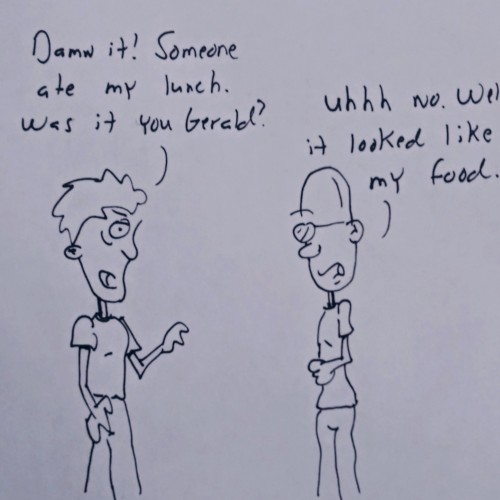 Damn it! Someone
ate my lunch.
Was it you Gerald?
uhhh no. Well
it looked like
my food.